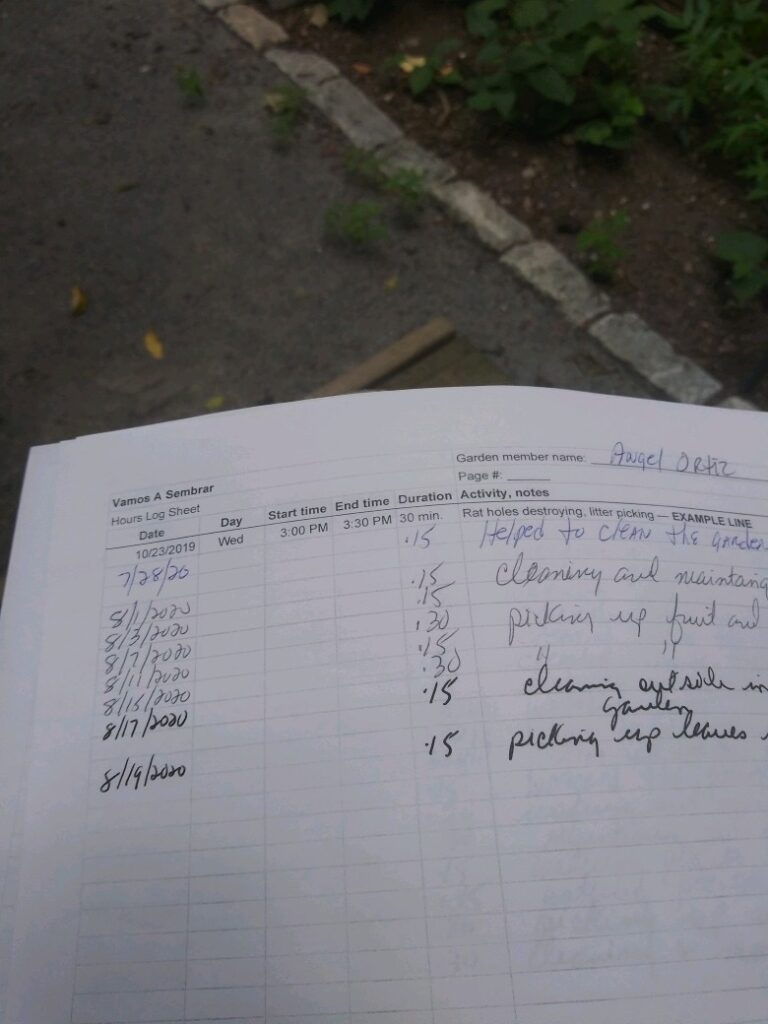 Garden member name: Angel Ortiz
Page #: ____
Vamos A Sembrar
Hours Log Sheet
Date Day Start time End time Duration Activity, notes
10/23/2019 Wed 3:00 PM 3:30 PM 30 min. Rat holes destroying, litter picking — EXAMPLE LINE
7/28/20 .15 Helped to clean the garden
8/1/2020 .15 cleaning and maintaing
8/3/2020 .15
8/7/2020 .30 picking up fruit and
8/11/2020 .15 " "
8/15/2020 .30
8/17/2020 .15 cleaning outside in
garden
8/19/2020 .15 picking up leaves